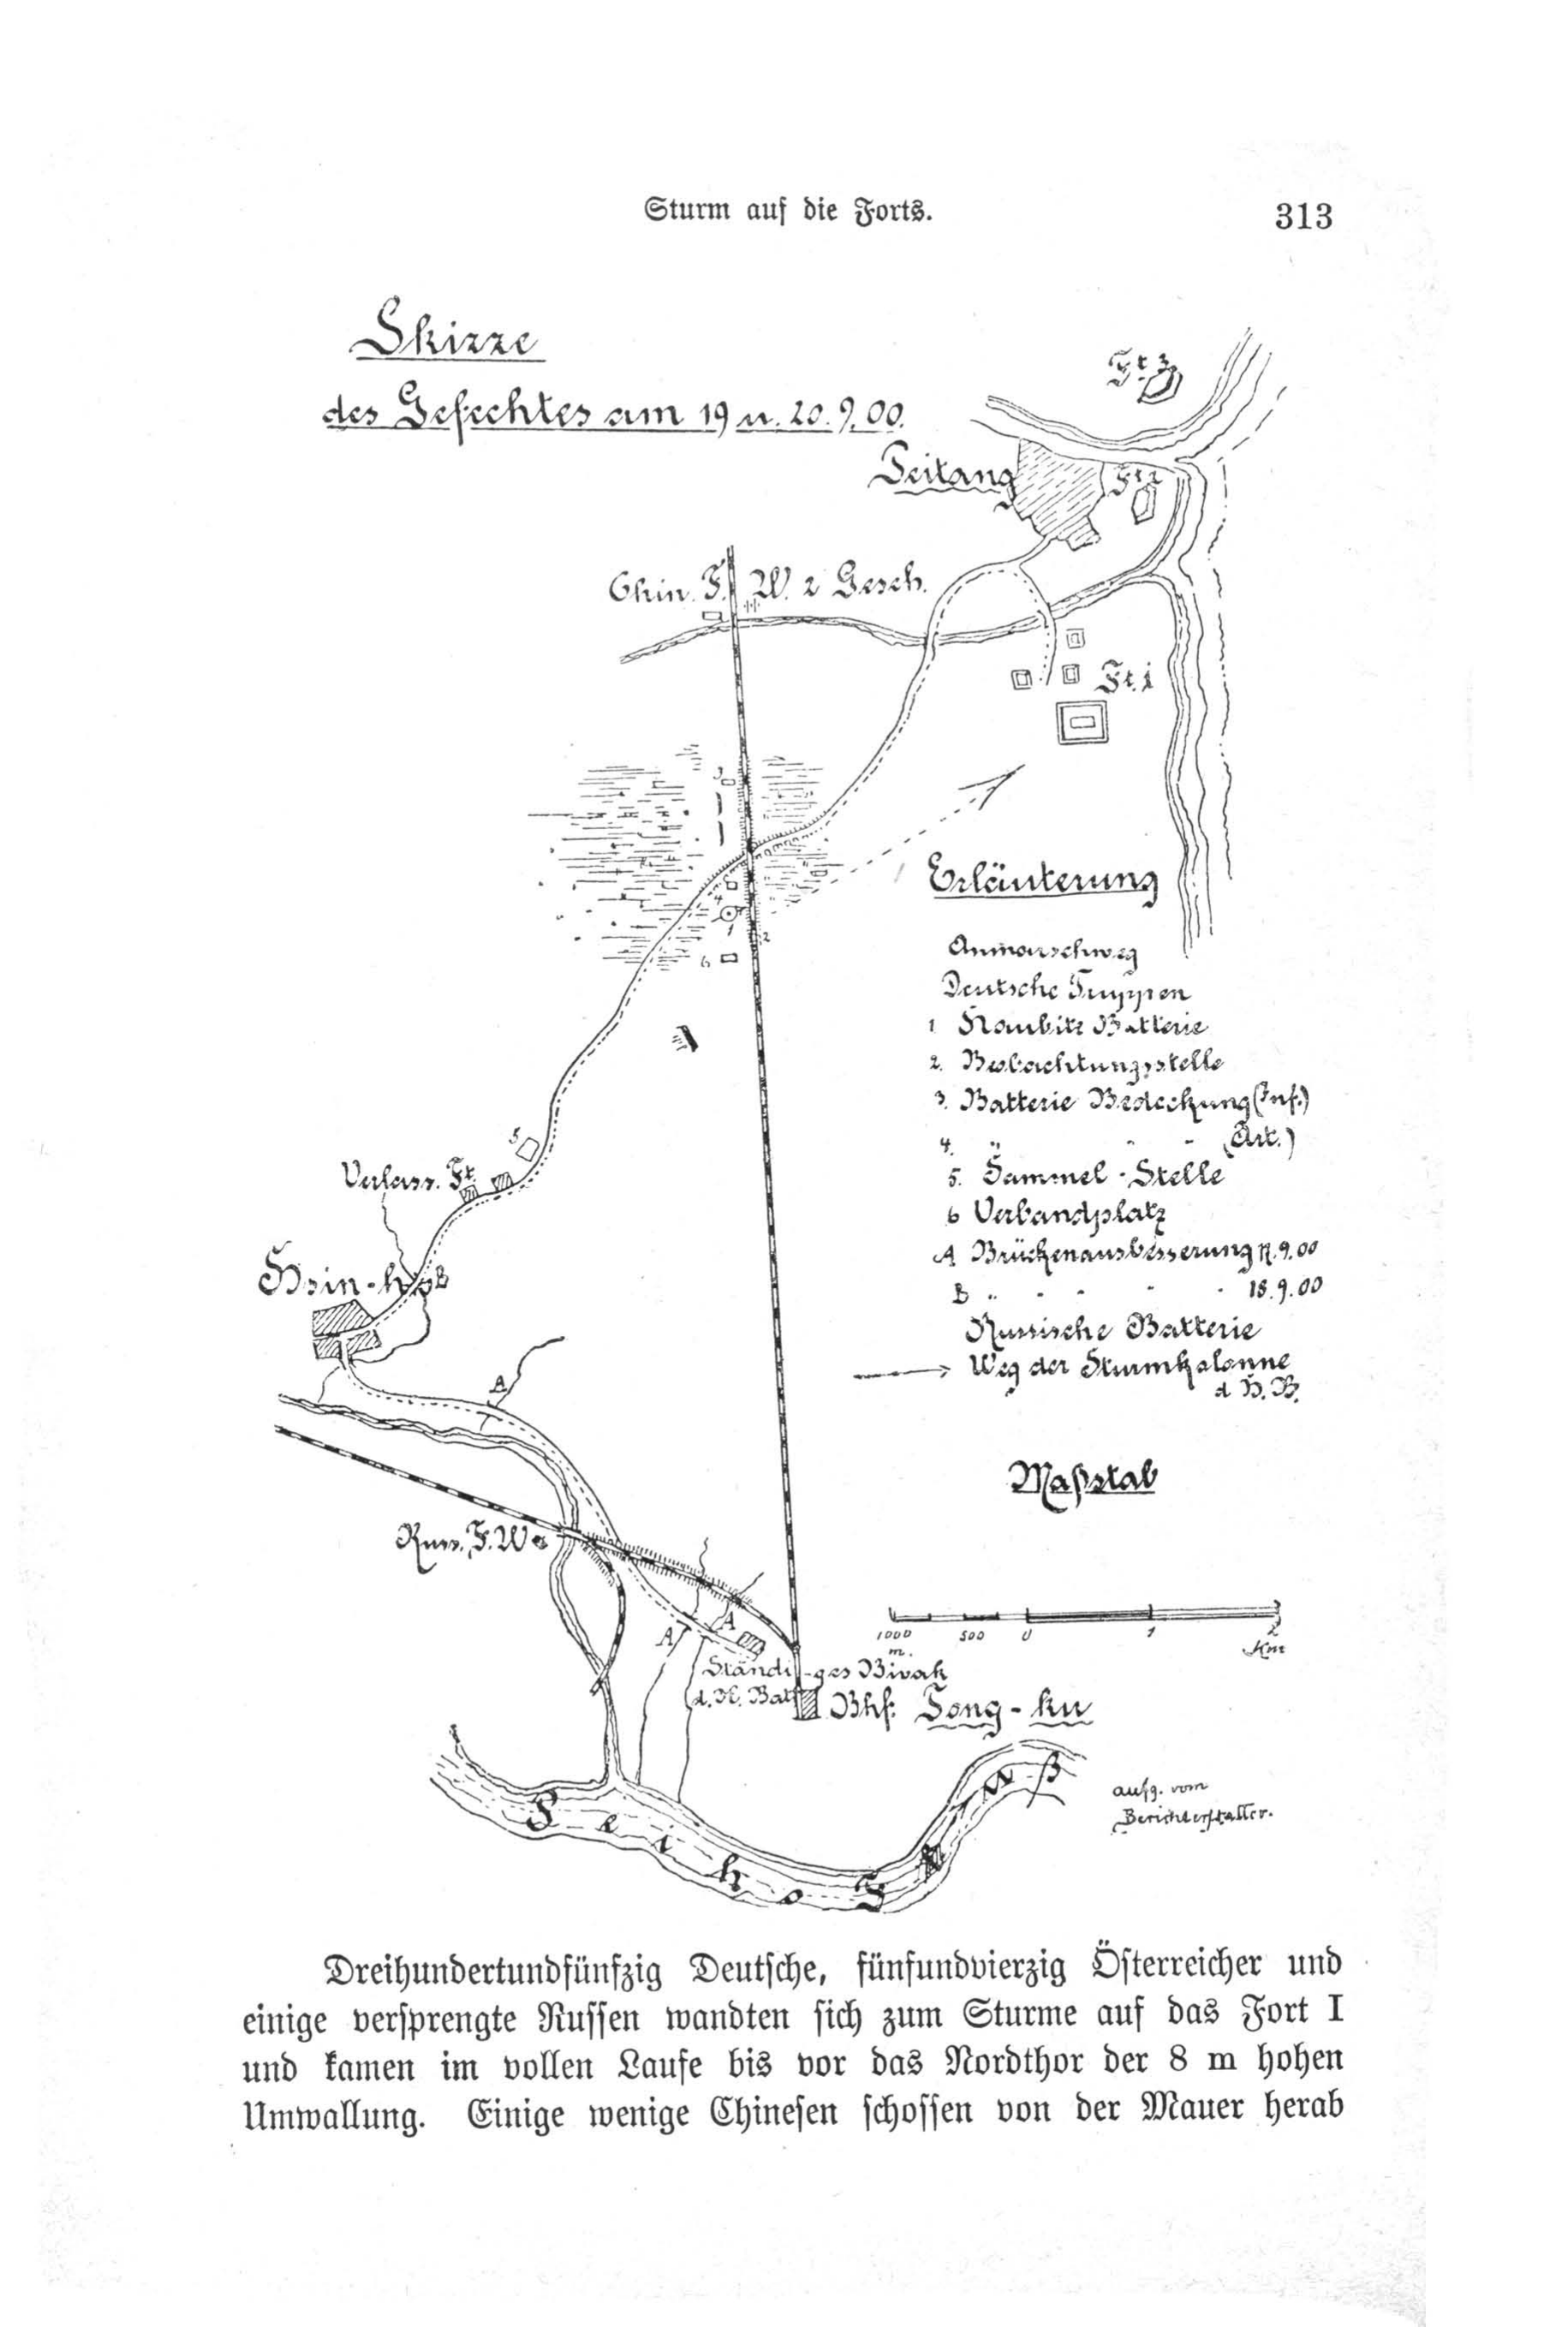 Sturm auf die Forts.
313
Skizze
des Gefechtes am 19 u. 20. 9. 00.
Ft. 3
Peitang
Ft 2
Chin. F. W. 2 Gesch.
Ft. 1
3
5
4
1
2
6
Erläuterung
Anmarschweg
Deutsche Truppen
1 Haubitz Batterie
2. Beobachtungsstelle
3. Batterie Bedeckung (Inf.)
4. " - - (Art.)
5. Sammel-Stelle
6 Verbandplatz
A Brückenausbesserung 17.9.00
B " - - - - 18.9.00
Russische Batterie
Weg der Sturmkolonne
d H. B.
5
Verlass. Ft.
Hsin-ho
B
A
Maßstab
Russ. F. W
1000 500 0 1 2
m. Km
A
A
Ständi-ges Bivak
d. H. Batt
Bhf. Tong-ku
Peiho Fluß
aufg. vom
Berichterstatter.
Dreihundertundfünfzig Deutsche, fünfundvierzig Österreicher und
einige versprengte Russen wandten sich zum Sturme auf das Fort I
und kamen im vollen Laufe bis vor das Nordthor der 8 m hohen
Umwallung. Einige wenige Chinesen schossen von der Mauer herab